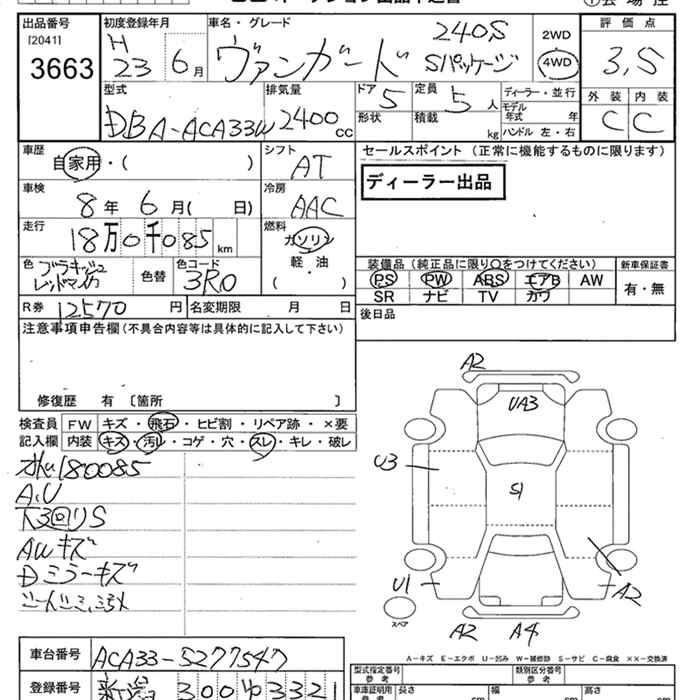 出品番号
[2041]
3663
初度登録年月
H
23 6月
車名・グレード
ヴァンガード
240S
Sパッケージ
2WD
4WD
評価点
3,5
型式
DBA-ACA33W
排気量
2400cc
ドア 5
形状
定員 5人
積載 kg
ディーラー・並行
モデル年式 年
ハンドル 左・右
外装 内装
C C
車歴
自家用・( )
シフト
AT
セールスポイント (正常に機能するものに限ります)
ディーラー出品
車検
8年 6月( 日)
冷房
AAC
走行
18万0千085km
燃料
ガソリン
軽・油
( ・ )
色
ブラキッシュ
レッドマイカ
色替
色コード
3R0
装備品(純正品に限り○をつけてください)
PS PW ABS エアB AW
SR ナビ TV カワ
新車保証書
有・無
R券 12570円
名変期限 月 日
後日品
注意事項申告欄(不具合内容等は具体的に記入して下さい)
修復歴 有 〔箇所 〕
検査員
記入欄
FW キズ・飛石・ヒビ割・リペア跡・×要
内装 キズ・汚レ・コゲ・穴・スレ・キレ・破レ
180085
A,U
下3回りS
AWキズ
Dミラーキズ
A2
UA3
U3
S1
U1
A2
A2 A4
スペア
A-キズ E-エクボ U-凹み W-補修跡 S-サビ C-腐食 ××-交換済
車台番号
ACA33-5277547
登録番号
300 ゆ 3321
型式指定番号
参考
類別区分番号
参考
車庫証明用
参考
長さ 幅 高さ